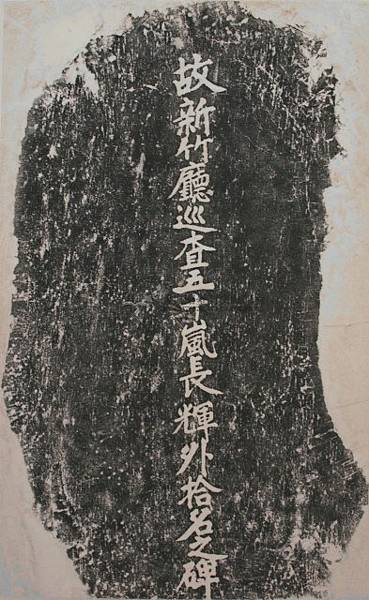 故新竹廳巡查五十嵐長輝外拾名之碑